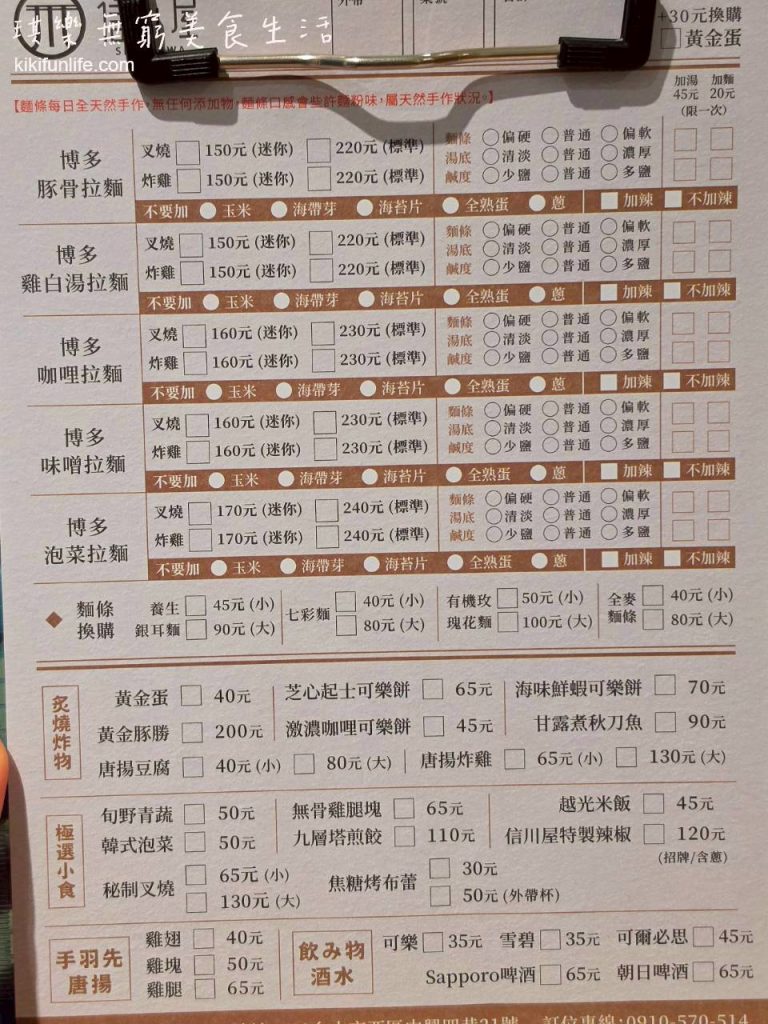 琪樂無窮美食生活
kikifunlife.com
+30元換購
黃金蛋
【麵條每日全天然手作,無任何添加物,麵條口感會些許麵粉味,屬天然手作狀況。】
加湯 加麵
45元 20元
(限一次)
博多
豚骨拉麵
叉燒 150元 (迷你) 220元 (標準)
炸雞 150元 (迷你) 220元 (標準)
麵條 偏硬 普通 偏軟
湯底 清淡 普通 濃厚
鹹度 少鹽 普通 多鹽
不要加 玉米 海帶芽 海苔片 全熟蛋 蔥 加辣 不加辣
博多
雞白湯拉麵
叉燒 150元 (迷你) 220元 (標準)
炸雞 150元 (迷你) 220元 (標準)
麵條 偏硬 普通 偏軟
湯底 清淡 普通 濃厚
鹹度 少鹽 普通 多鹽
不要加 玉米 海帶芽 海苔片 全熟蛋 蔥 加辣 不加辣
博多
咖哩拉麵
叉燒 160元 (迷你) 230元 (標準)
炸雞 160元 (迷你) 230元 (標準)
麵條 偏硬 普通 偏軟
湯底 清淡 普通 濃厚
鹹度 少鹽 普通 多鹽
不要加 玉米 海帶芽 海苔片 全熟蛋 蔥 加辣 不加辣
博多
味噌拉麵
叉燒 160元 (迷你) 230元 (標準)
炸雞 160元 (迷你) 230元 (標準)
麵條 偏硬 普通 偏軟
湯底 清淡 普通 濃厚
鹹度 少鹽 普通 多鹽
不要加 玉米 海帶芽 海苔片 全熟蛋 蔥 加辣 不加辣
博多
泡菜拉麵
叉燒 170元 (迷你) 240元 (標準)
炸雞 170元 (迷你) 240元 (標準)
麵條 偏硬 普通 偏軟
湯底 清淡 普通 濃厚
鹹度 少鹽 普通 多鹽
不要加 玉米 海帶芽 海苔片 全熟蛋 蔥 加辣 不加辣
麵條
換購
養生
銀耳麵
45元 (小)
90元 (大)
七彩麵
40元 (小)
80元 (大)
有機玫
瑰花麵
50元 (小)
100元 (大)
全麥
麵條
40元 (小)
80元 (大)
炙燒炸物
黃金蛋 40元 芝心起士可樂餅 65元 海味鮮蝦可樂餅 70元
黃金豚勝 200元 激濃咖哩可樂餅 45元 甘露煮秋刀魚 90元
唐揚豆腐 40元 (小) 80元 (大) 唐揚炸雞 65元 (小) 130元 (大)
極選小食
旬野青蔬 50元 無骨雞腿塊 65元 越光米飯 45元
韓式泡菜 50元 九層塔煎餃 110元 信川屋特製辣椒 120元
(招牌/含蔥)
秘制叉燒
65元 (小)
130元 (大)
焦糖烤布蕾
30元
50元 (外帶杯)
手羽先
唐揚
雞翅 40元
雞塊 50元
雞腿 65元
飲み物
酒水
可樂 35元 雪碧 35元 可爾必思 45元
Sapporo啤酒 65元 朝日啤酒 65元
訂位專線:0910-570-514